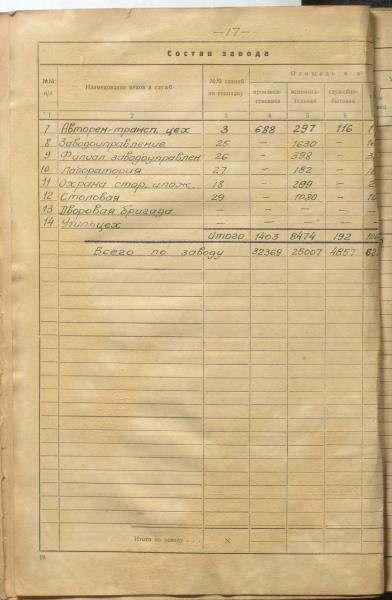 —17—
Состав завода
№№ п/п
Наименование цехов и служб
№№ зданий по генплану
Площадь в м
производственная
вспомогательная
служебно-бытовая
1 2 3 4 5 6
7 Авторем-трансп. цех 3 688 297 116
8 Заводоуправление 25 — 1630 —
9 Филиал заводоуправлен 26 — 398 —
10 Лаборатория 27 — 182 —
11 Охрана стор. и пож. 18 — 299 —
12 Столовая 29 — 1080 —
13 Дворовая бригада — — — —
14 Утильцех — — — —
Итого 1403 8474 192
Всего по заводу 32369 25007 4857
Итого по заводу . . . ×